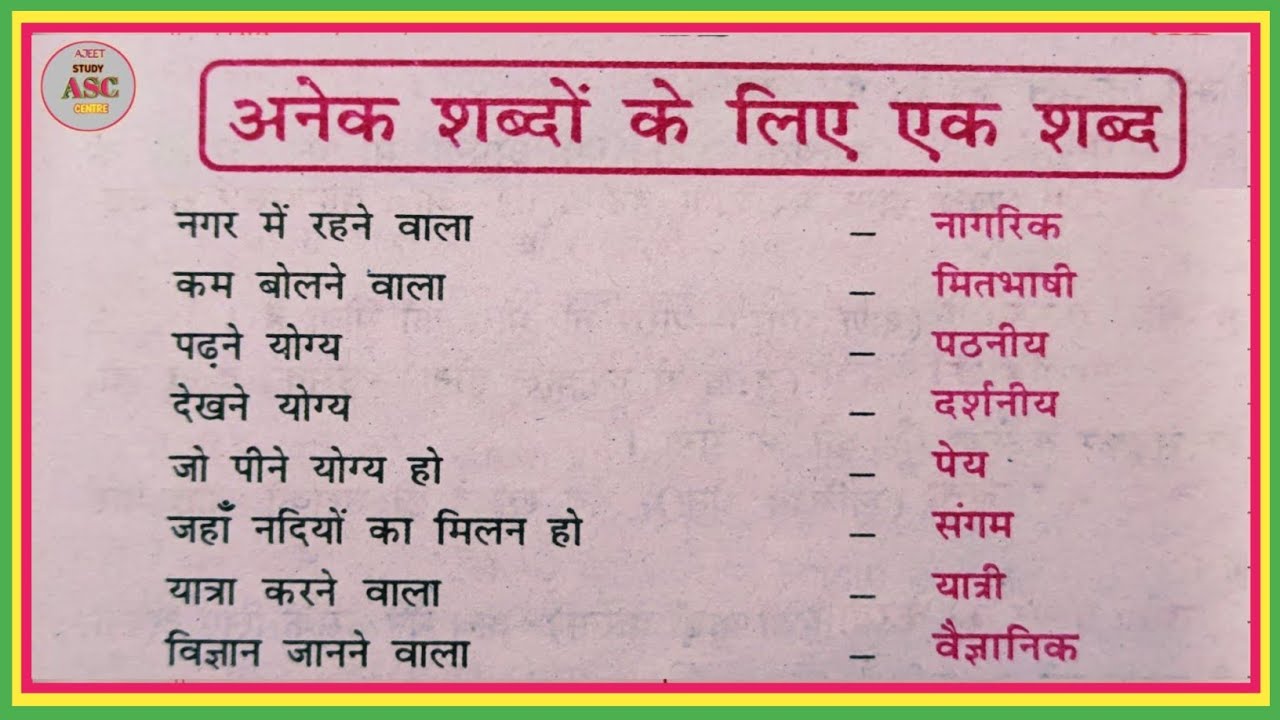 AJEET
STUDY
ASC
CENTRE
अनेक शब्दों के लिए एक शब्द
नगर में रहने वाला – नागरिक
कम बोलने वाला – मितभाषी
पढ़ने योग्य – पठनीय
देखने योग्य – दर्शनीय
जो पीने योग्य हो – पेय
जहाँ नदियों का मिलन हो – संगम
यात्रा करने वाला – यात्री
विज्ञान जानने वाला – वैज्ञानिक